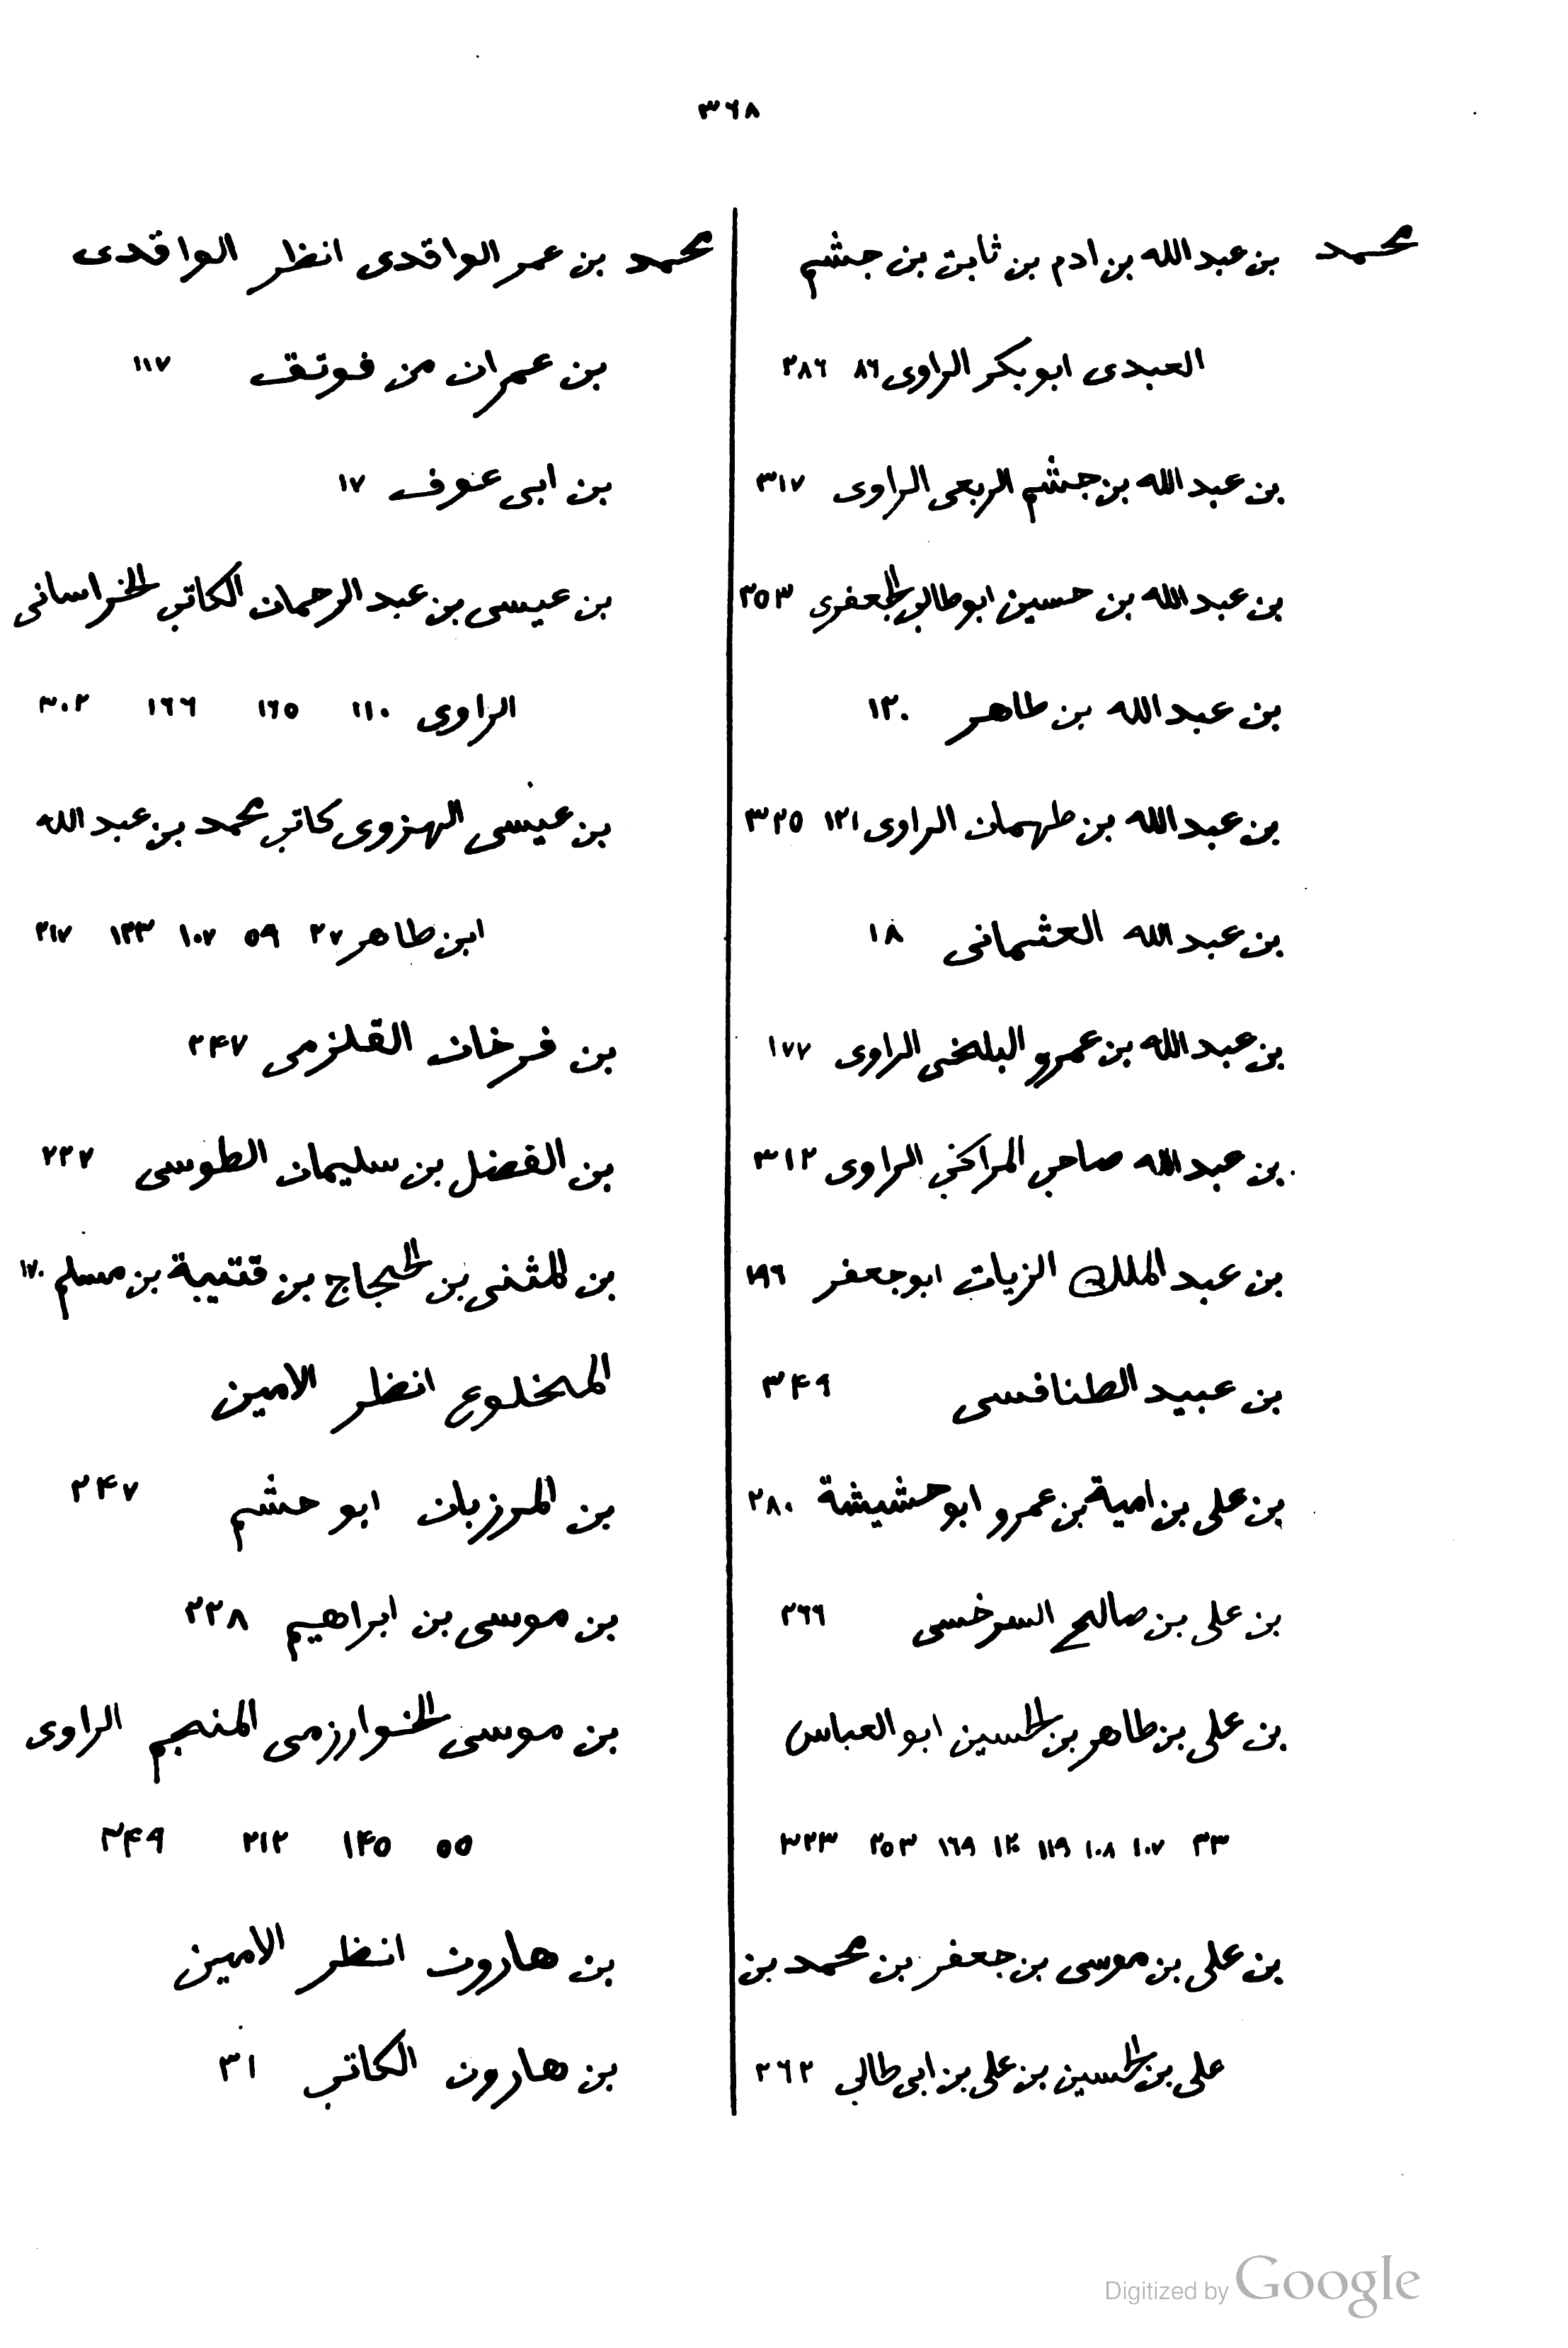 ٣٦٨
محمد بن عبد الله بن ادم بن ثابت بن جشم
العبدى ابو بكر الراوى ٨٦ ٢٨٦
بن عبد الله بن جشم الربعى الراوى ٣١٧
بن عبد الله بن حسين ابو طالب الجعفرى ٢٥٣
بن عبد الله بن طاهر ١٢٠
بن عبد الله بن طهمان الراوى ١٢١ ٣٢٥
بن عبد الله العثمانى ١٨
بن عبد الله بن عمرو البلخى الراوى ١٧٧
بن عبد الله صاحب المراكب الراوى ٣١٢
بن عبد الملك الزيات ابو جعفر
بن عبيد الطنافسى ٣۴٩
بن على بن امية بن عمرو ابو حشيشة ٢٨٠
بن على بن صالح السرخسى ٢٦٦
بن على بن طاهر بن الحسين ابو العباس
٣٣ ١٠٧ ١٠٨ ١١٩ ١٢٠ ١٦٩ ٢٥٣ ٣٢٣
بن على بن موسى بن جعفر بن محمد بن
على بن الحسين بن على بن ابى طالب ٢٦٢
محمد بن عمر الواقدى انظر الواقدى
بن عمران من فوتق ١١٧
بن ابى عوف ١٧
بن عيسى بن عبد الرحمان الكاتب الخراسانى
الراوى ١١٠ ١٦٥ ١٦٦ ٣٠٢
بن عيسى الهزوى كاتب محمد بن عبد الله
ابن طاهر ٢٧ ٥٩ ١٠٧ ١٣٣ ٢١٧
بن فرخان القلزمى ٢۴٧
بن الفضل بن سليمان الطوسى ٢٢٧
بن المثنى بن الحجاج بن قتيبة بن مسلم ١٧٠
المخلوع انظر الامين
بن المرزبان ابو حشم ٢۴٧
بن موسى بن ابراهيم ٢٢٨
بن موسى الخوارزمى المنجم الراوى
٥٥ ١۴٥ ٢١٢ ٣۴٩
بن هارون انظر الامين
بن هارون الكاتب ٣١
Digitized by Google